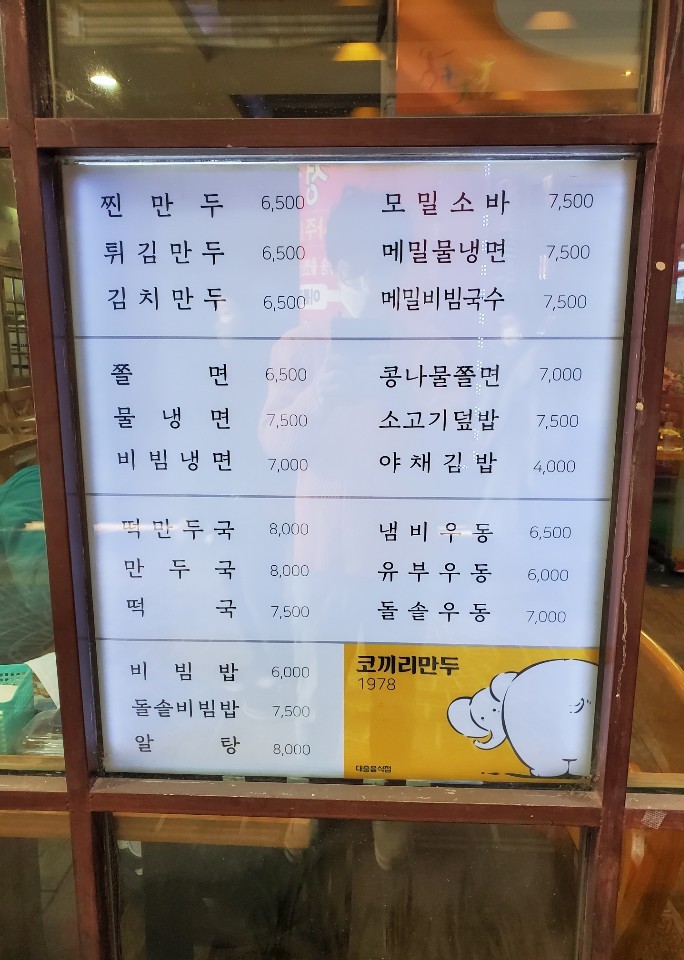 찐만두 6,500
튀김만두 6,500
김치만두 6,500
쫄면 6,500
물냉면 7,500
비빔냉면 7,000
떡만두국 8,000
만두국 8,000
떡국 7,500
비빔밥 6,000
돌솥비빔밥 7,500
알탕 8,000
모밀소바 7,500
메밀물냉면 7,500
메밀비빔국수 7,500
콩나물쫄면 7,000
소고기덮밥 7,500
야채김밥 4,000
냄비우동 6,500
유부우동 6,000
돌솥우동 7,000
코끼리만두
1978
대중음식점